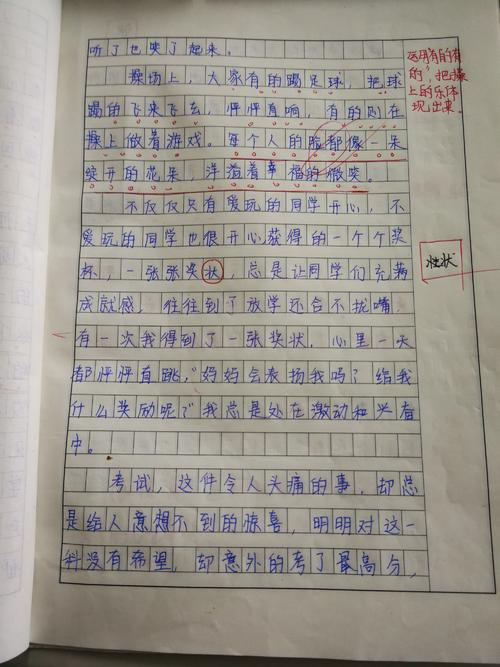 听了也笑了起来。
操场上，大家有的踢足球，把球
踢的飞来飞去，怦怦直响，有的则在
操上做着游戏。每个人的脸都像一朵
笑开的花朵，洋溢着幸福的微笑。
不仅仅只有爱玩的同学开心，不
爱玩的同学也很开心获得的一个个奖
杯，一张张奖状，总是让同学们充满
成就感！往往到了放学还合不拢嘴，
有一次我得到了一张奖状，心里一天
都怦怦直跳，“妈妈会表扬我吗？给我
什么奖励呢？”我总是处在激动和兴奋
中。
考试，这件令人头痛的事，却总
是给人意想不到的惊喜，明明对这一
科没有希望，却意外的考了最高分，
运用有的有
的，把操
上的乐体
现出来。
状